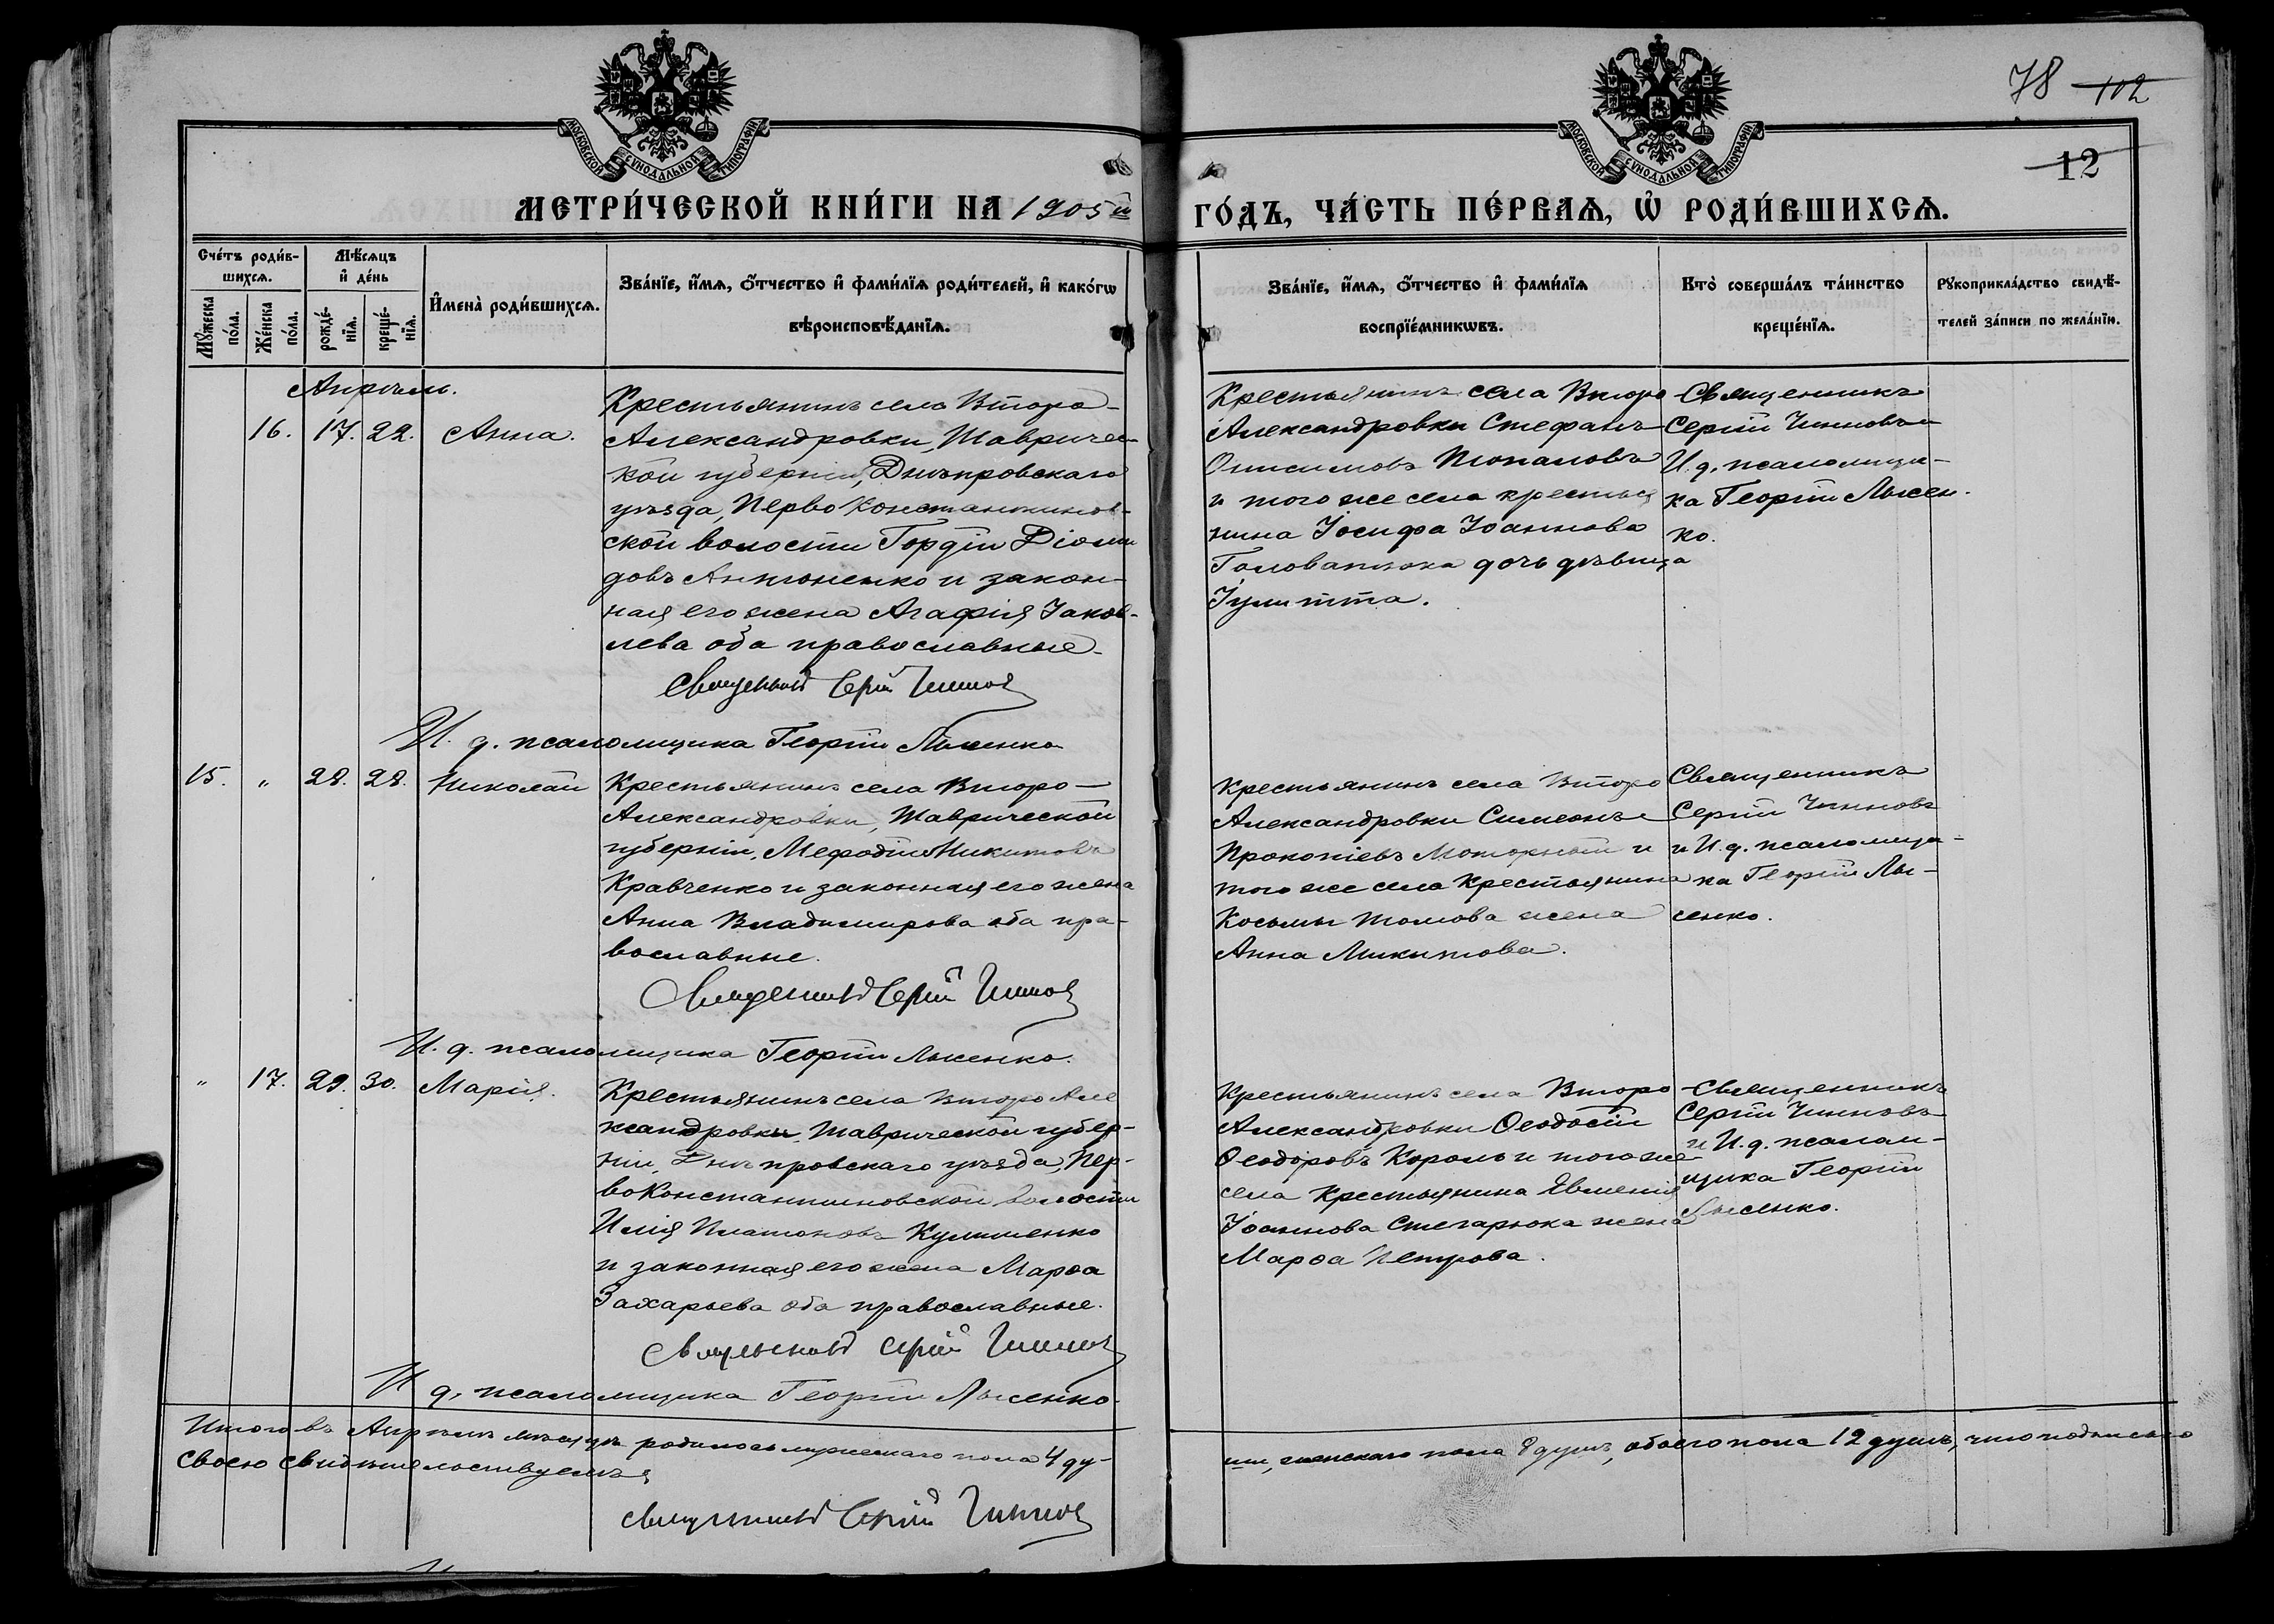 78 102
12
МОСКОВСКОЙ СѴНОДАЛЬНОЙ ТИПОГРАФІИ
МОСКОВСКОЙ СѴНОДАЛЬНОЙ ТИПОГРАФІИ
МЕТРИ́ЧЕСКОЙ КНИ́ГИ НА 1905й ГО́ДЪ, ЧА́СТЬ ПЕ́РВАѦ, Ѡ҆ РОДИ́ВШИХСѦ.
Сче́тъ роди́в-
шихсѧ.
Мѹ́жеска по́ла.
Же́нска по́ла.
Мѣ́сѧцъ
и҆ де́нь
рожде́-нїѧ.
креще́-нїѧ.
И҆мена̀ роди́вшихсѧ.
Зва́нїе, и҆́мѧ, ѻ҆́тчество и҆ фами́лїѧ роди́телей, и҆ како́гѡ
вѣроисповѣ́данїѧ.
Зва́нїе, и҆́мѧ, ѻ҆́тчество и҆ фами́лїѧ
воспрїе́мникѡвъ.
Кто̀ соверша́лъ та́инство
креще́нїѧ.
Рꙋкоприкла́дство свидѣ́-
телей за́писи по жела́нїю.
Апрѣль.
16. 17. 22. Анна.
Крестьянинъ села Второ-
Александровки, Тавричес-
кой губерніи, Днѣпровскаго
уѣзда, Перво Константинов-
ской волости Гордій Діоми
довъ Антоненко и закон-
ная его жена Агафія Іаков-
лева оба православные.
Священникъ Сергій Чинновъ
И. д. псаломщика Георгій Лысенко
Крестьянинъ села Второ
Александровки Стефанъ
Онисимовъ Топаловъ
и того же села крестья
нина Іосифа Іоаннова
Голованюка дочь дѣвица
Іулитта.
Священникъ
Сергій Чинновъ
И. д. псаломщи-
ка Георгій Лысен-
ко.
15. " 28. 28. Николай
Крестьянинъ села Второ-
Александровки, Таврической
губерніи, Мефодій Никитовъ
Кравченко и законная его жена
Анна Владимирова оба пра-
вославные.
Священникъ Сергій Чинновъ
И. д. псаломщика Георгій Лысенко.
Крестьянинъ села Второ
Александровки Симеонъ
Прокопіевъ Моторный и
того же села крестьянина
Косьмы Томова жена
Анна Никитова.
Священникъ
Сергій Чинновъ
и И. д. псаломщи-
ка Георгій Лы-
сенко.
" 17. 29. 30. Марія.
Крестьянинъ села Второ Але
ксандровки, Таврической губер-
ніи, Днѣпровскаго уѣзда, Пер-
воКонстантиновской волости
Илія Платоновъ Кулишенко
и законная его жена Марѳа
Захарьева оба православные.
Священникъ Сергій Чинновъ
И д. псаломщика Георгій Лысенко.
Крестьянинъ села Второ
Александровки Ѳеодосій
Ѳеодоровъ Король и того же
села крестьянина Евменія
Іоаннова Стегарюка жена
Марѳа Петрова.
Священникъ
Сергій Чинновъ
и И. д. псалом-
щика Георгій
Лысенко.
Итого въ Апрѣлѣ мѣсяцѣ родилось мужескаго пола 4 ду-
ши, женскаго пола 8 душъ, обоего пола 12 душъ, что подписью
своею свидѣтельствуемъ
Священникъ Сергій Чинновъ